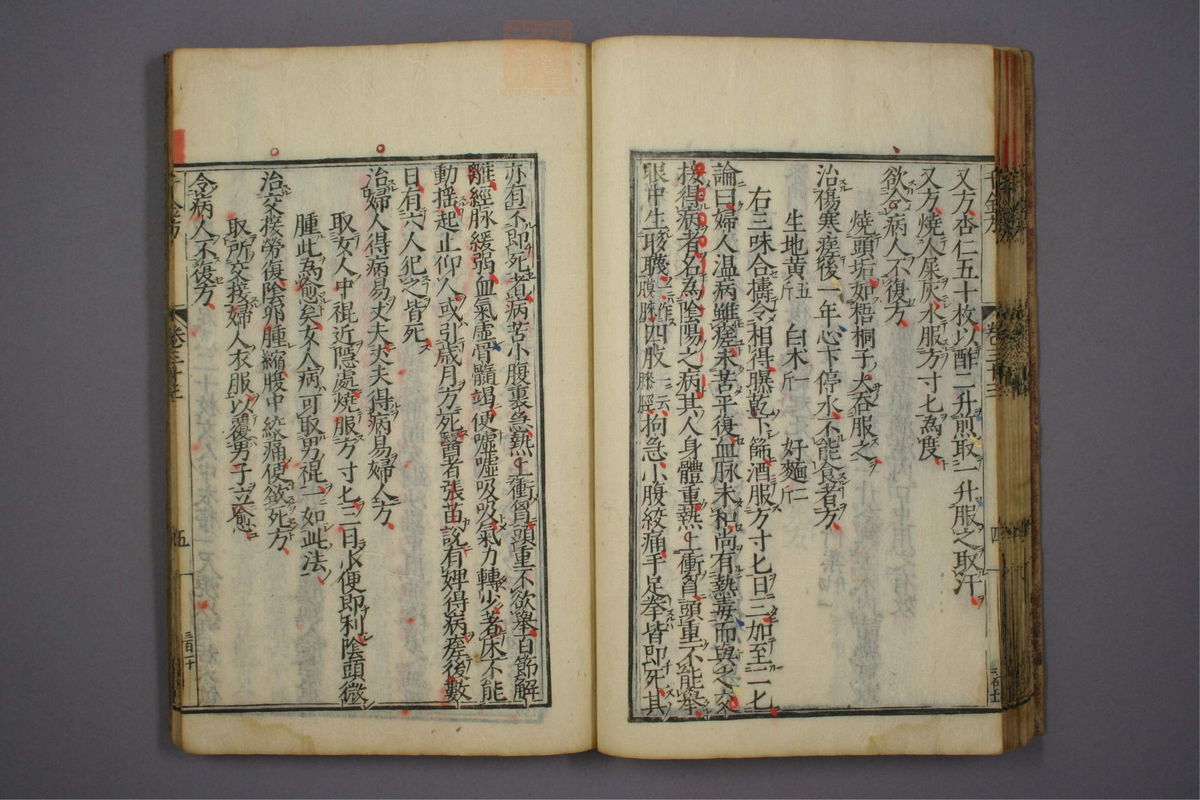 又方杏仁五十枚以酢二升煎取一升服之取汗
又方燒人屎灰水服方寸匕為度
欲令病人不復方
燒頭垢如梧桐子大吞服之
治傷寒瘥後一年心下停水不能食者方
生地黄五斤 白朮一斤 好麵二斤
右三味合擣令相得曝乾下篩酒服方寸匕日三加至二匕
論曰婦人温病雖瘥未苦平復血脉未和尚有熱毒而與之交
接得病者名為陰陽之病其人身體重熱上衝胷頭重不能舉
眼中生眵䁾一作膜膝四肢一云膝脛拘急小腹絞痛手足拳皆即死其
亦有不即死者病苦小腹裏急熱上衝胷頭重不欲舉百節解
離經脉緩弱血氣虚骨髓竭便噓噓吸吸氣力轉少著床不能
動揺起止仰人或引歳月方死醫者張苗說有婢得病瘥後數
日有六人犯之皆死
治婦人得病易丈夫丈夫得病易婦人方
取女人中裩近隱處燒服方寸匕三日小便即利陰頭微
腫此為愈矣女人病可取男裩一如此法
治交接勞復陰卵腫縮腹中絞痛便欲死方
取所交接婦人衣服以覆男子立愈
令病人不復方
卷三十三
四
卷三十三
五
三百二十